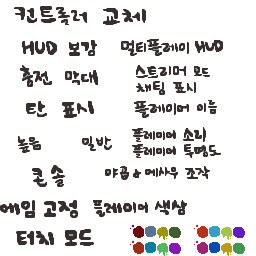 컨트롤러 교체
HUD 보강 멀티플레이 HUD
충전 막대 스트리머 모드
채팅 표시
탄 표시 플레이어 이름
높음 일반 플레이어 소리
플레이어 투명도
콘솔 야곱 & 메사우 조각
에임 고정 플레이어 색상
터치 모드